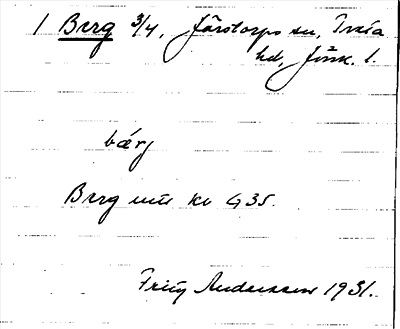 1 Berg 3/4, Järstorps sn, Tveta
hd, Jönk. l.
bærj
Berg utu kv G 35.
Fritz Andersson 1931.